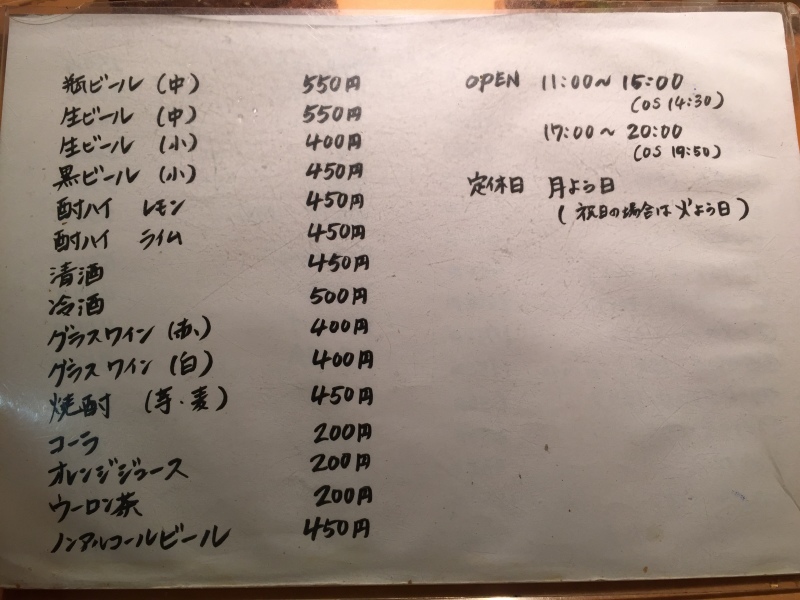 瓶ビール (中) 550円
生ビール (中) 550円
生ビール (小) 400円
黒ビール (小) 450円
酎ハイ レモン 450円
酎ハイ ライム 450円
清酒 450円
冷酒 500円
グラスワイン (赤) 400円
グラスワイン (白) 400円
焼酎 (芋・麦) 450円
コーラ 200円
オレンジジュース 200円
ウーロン茶 200円
ノンアルコールビール 450円
OPEN 11:00〜15:00
(OS 14:30)
17:00〜20:00
(OS 19:50)
定休日 月よう日
(祝日の場合は火よう日)